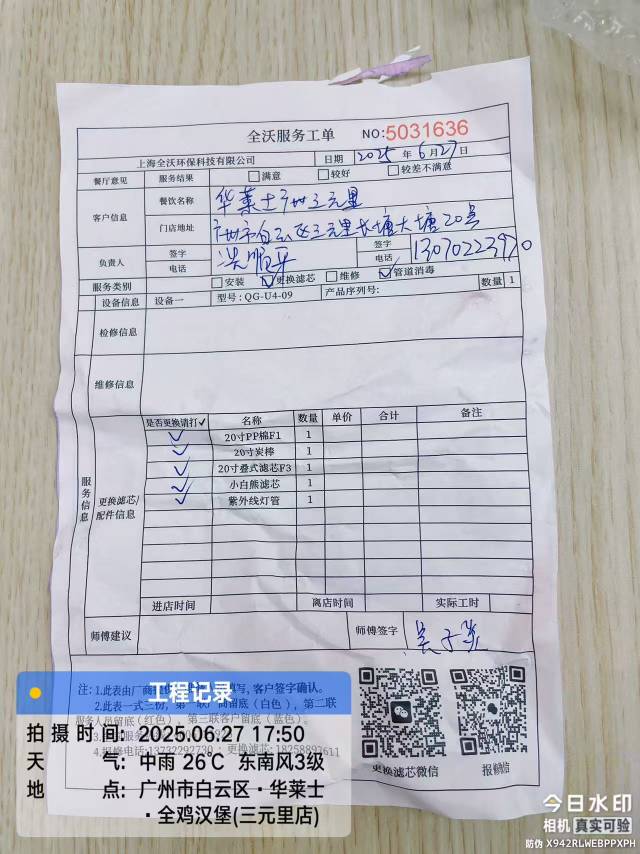 全沃服务工单 NO:5031636
上海全沃环保科技有限公司 日期 2025 年 6 月 27 日
餐厅意见 服务结果 □满意 □较好 □较差不满意
客户信息 餐饮名称 华莱士广州三元里
门店地址 广州市白云区三元里长塘大塘20号
负责人 签字 签字
电话 电话 13070223970
服务类别 □安装 ☑更换滤芯 □维修 ☑管道消毒
设备信息 设备一 型号: QG-U4-09 产品序列号: 数量 1
检修信息
维修信息
服务信息
更换滤芯/配件信息
是否更换请打✓ 名称 数量 单价 合计 备注
✓ 20寸PP棉F1 1
✓ 20寸炭棒 1
✓ 20寸叠式滤芯F3 1
✓ 小白熊滤芯 1
✓ 紫外线灯管 1
进店时间 离店时间 实际工时
师傅建议 师傅签字
注: 1.此表由厂商 填写, 客户签字确认。
2.此表一式三份, 第一联厂商留底(白色), 第二联
服务人员留底(红色), 第三联客户留底(蓝色)。
4.报修电话:13732292730 ; 更换滤芯: 18258893611
更换滤芯微信 报修微信
工程记录
拍摄时间: 2025.06.27 17:50
天气: 中雨 26℃ 东南风3级
地点: 广州市白云区·华莱士
·全鸡汉堡(三元里店)
今日水印
相机 真实可验
防伪 X942RLWEBPPXPH